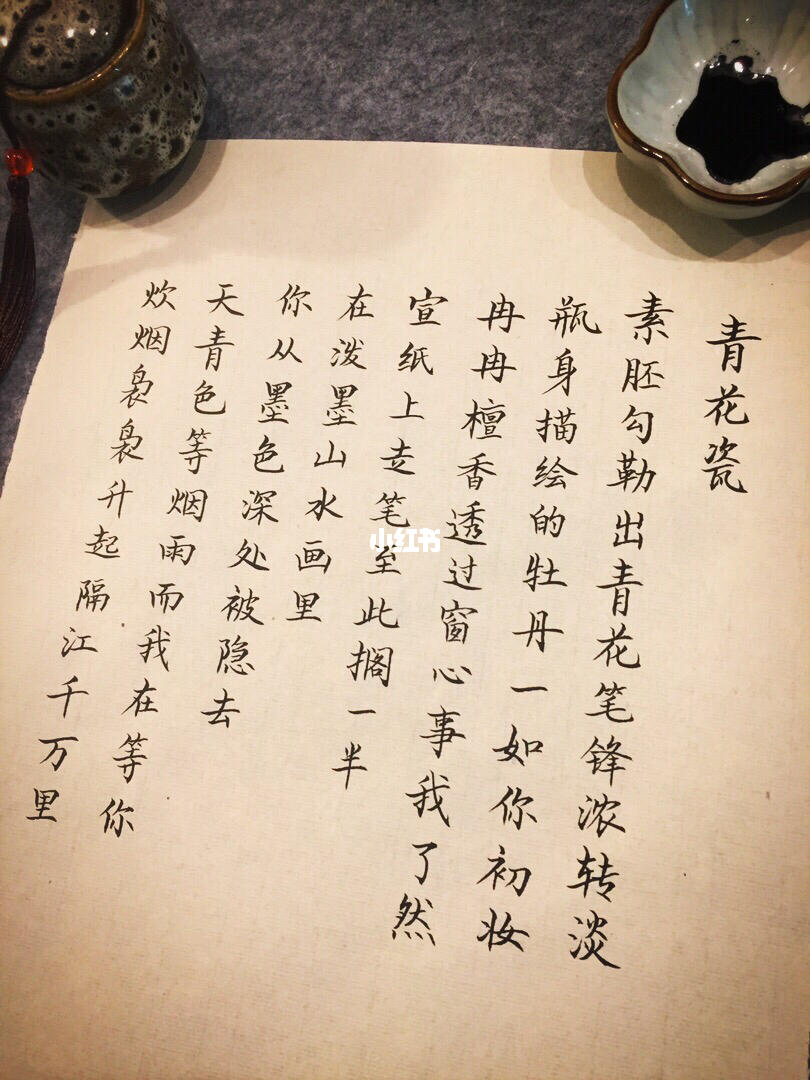 青花瓷
素胚勾勒出青花笔锋浓转淡
瓶身描绘的牡丹一如你初妆
冉冉檀香透过窗心事我了然
宣纸上走笔至此搁一半
在泼墨山水画里
你从墨色深处被隐去
天青色等烟雨而我在等你
炊烟袅袅升起隔江千万里
小红书